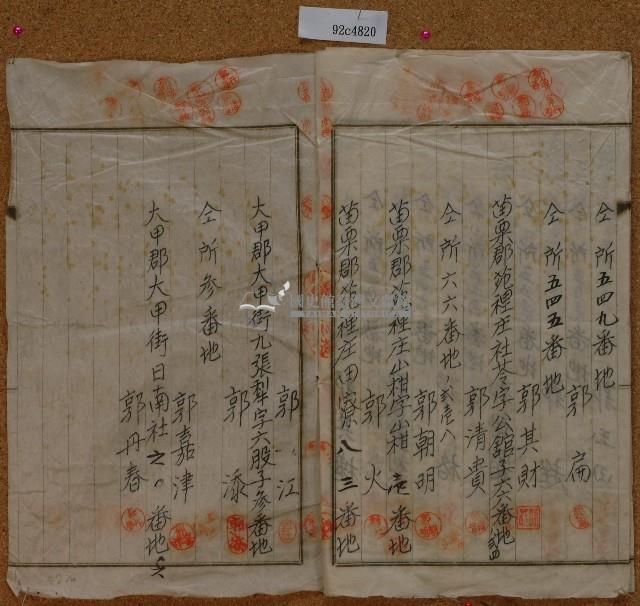 92c4820
仝所五四九番地
郭扁
仝所五四五番地
郭其財
苗栗郡苑裡庄社苓字公館子六六番地
郭清貴
仝所六六番地
郭朝明
苗栗郡苑裡庄山柑字山柑 番地
郭火
苗栗郡苑裡庄田寮八三番地
郭江
大甲郡大甲街九張犁字六股子參番地
郭添
仝所參番地
郭嘉津
大甲郡大甲街日南社 番地
郭丹春
TAIWAN HISTORICA